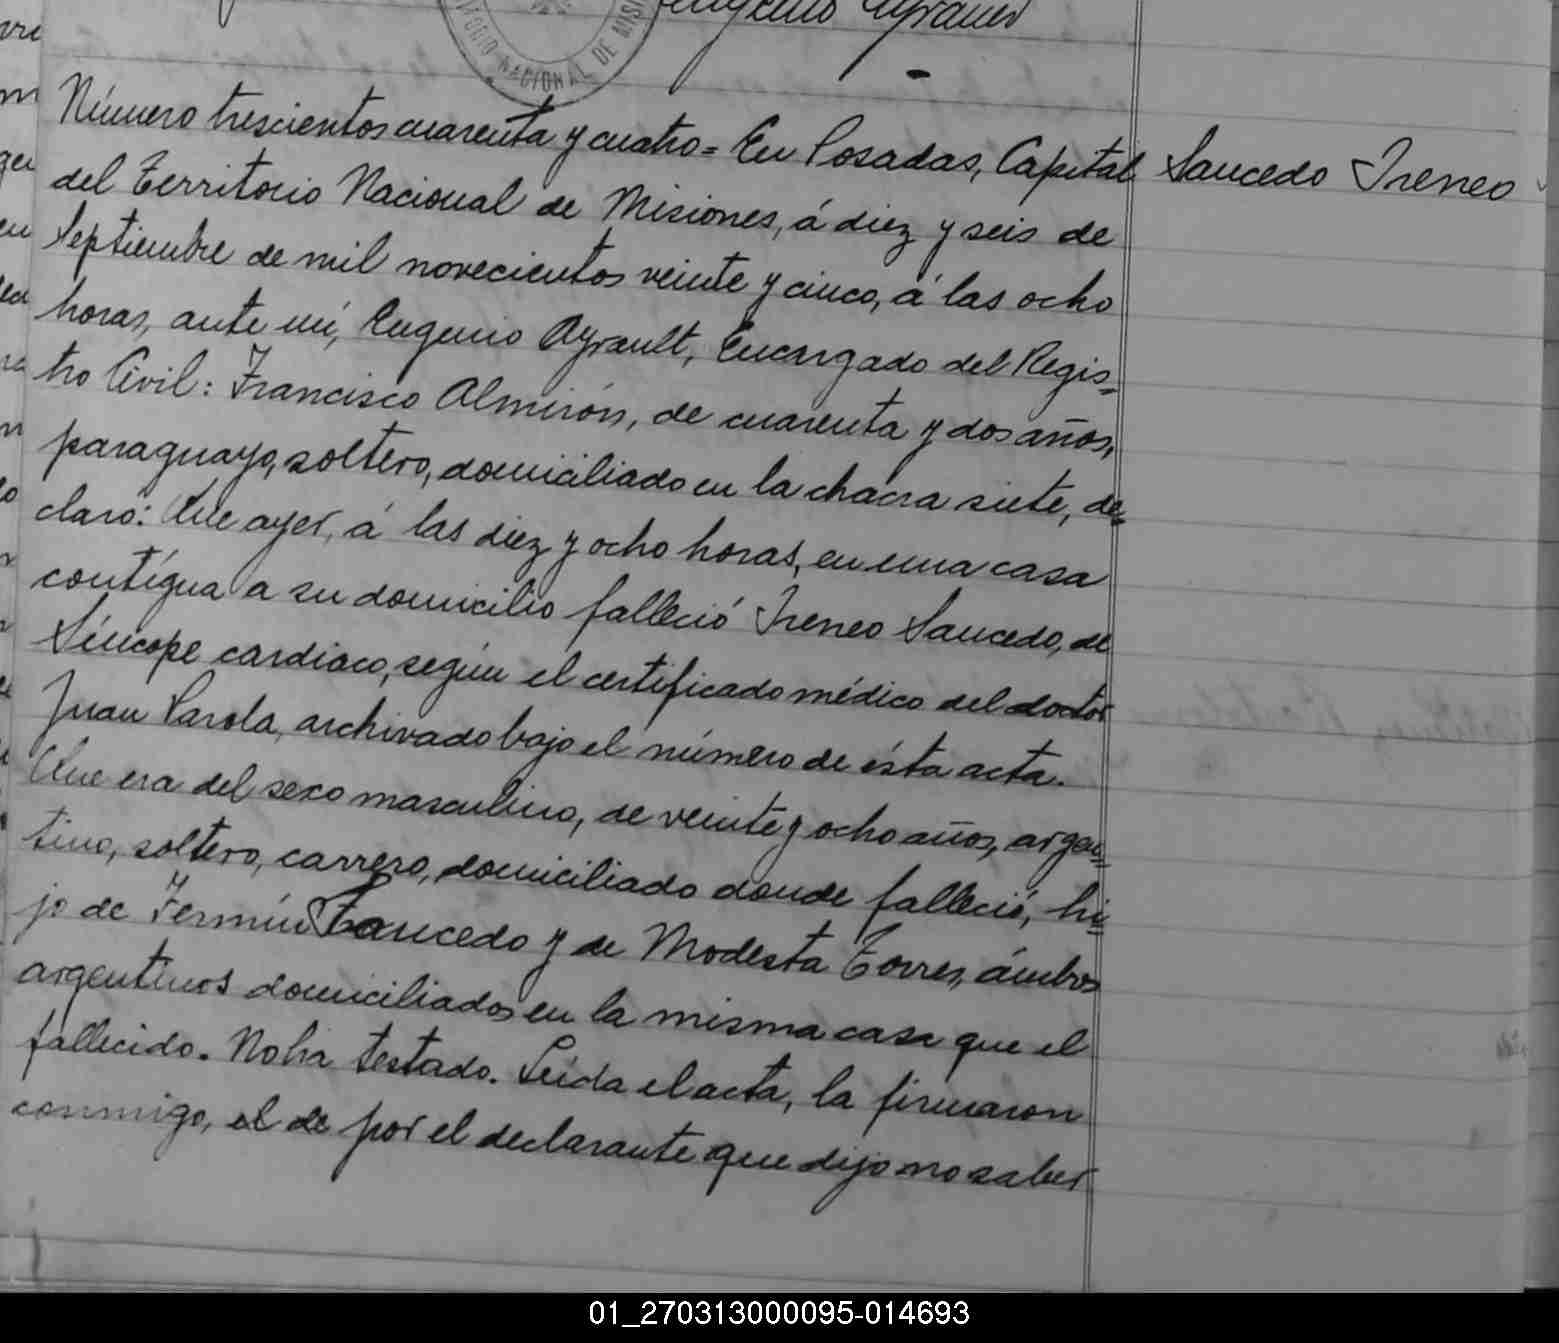 Eugenio Ayrault
NACIONAL DE MISI
Número trescientos cuarenta y cuatro = En Posadas, Capital
Saucedo Ireneo
del Territorio Nacional de Misiones, á diez y seis de
Septiembre de mil novecientos veinte y cinco, á las ocho
horas, ante mí, Eugenio Ayrault, Encargado del Regis=
tro Civil: Francisco Almirón, de cuarenta y dos años,
paraguayo, soltero, domiciliado en la chacra siete, de=
claró: Que ayer, á las diez y ocho horas, en una casa
contígua a su domicilio falleció Ireneo Saucedo, de
Síncope cardiaco, según el certificado médico del doctor
Juan Parola, archivado bajo el número de ésta acta.
Que era del sexo masculino, de veinte y ocho años, argen=
tino, soltero, carrero, domiciliado donde falleció, hi=
jo de Fermín Saucedo y de Modesta Torres, ámbos
argentinos domiciliados en la misma casa que el
fallecido. No ha testado. Leída el acta, la firmaron
conmigo, el de por el declarante que dijo no saber
01_270313000095-014693